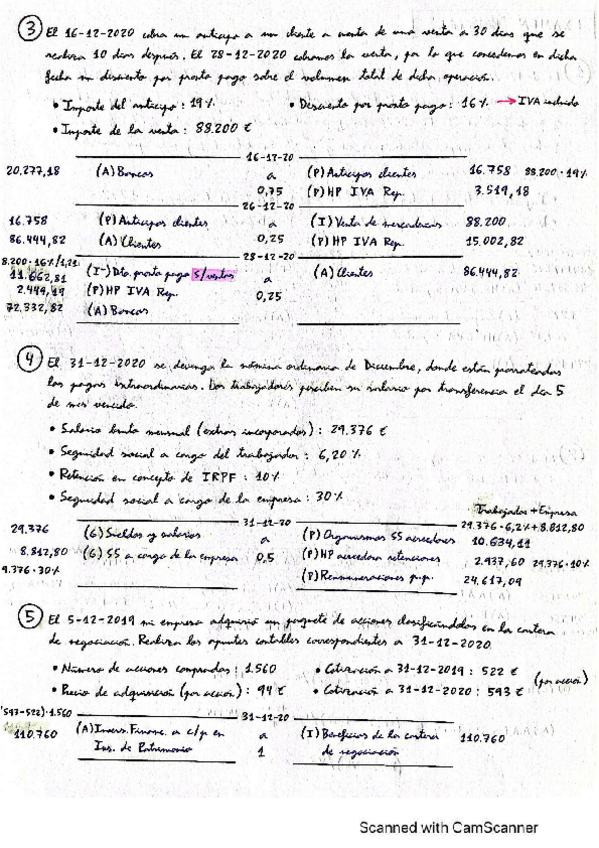 ③ El 16-12-2020 cobra un anticipo a un cliente a cuenta de una venta a 30 días que se
realiza 10 días después. El 28-12-2020 cobramos la venta, por lo que concedemos en dicha
fecha un descuento por pronto pago sobre el volumen total de dicha operación.
• Importe del anticipo: 19% • Descuento por pronto pago: 16% → IVA incluido
• Importe de la venta: 88.200 €
16-12-20
20.277,18 (A) Bancos a (P) Anticipos clientes 16.758 88.200·19%
0,75 (P) HP IVA Rep. 3.519,18
26-12-20
16.758 (P) Anticipos clientes a (I) Venta de mercaderías 88.200
86.444,82 (A) Clientes 0,25 (P) HP IVA Rep. 15.002,82
28-12-20
8.200·16%/1,21
11.662,81 (I-) Dto. pronto pago s/ventas a (A) Clientes 86.444,82
2.449,19 (P) HP IVA Rep. 0,25
72.332,82 (A) Bancos
④ El 31-12-2020 se devenga la nómina ordinaria de Diciembre, donde están prorrateadas
las pagas extraordinarias. Los trabajadores perciben su salario por transferencia el día 5
de mes vencido.
• Salario bruto mensual (extras incorporadas): 29.376 €
• Seguridad social a cargo del trabajador: 6,20%
• Retención en concepto de IRPF: 10%
• Seguridad social a cargo de la empresa: 30%
Trabajador + Empresa
31-12-20 29.376·6,2%+8.812,80
29.376 (G) Sueldos y salarios a (P) Organismos SS acreedores 10.634,11
8.812,80 (G) SS a cargo de la empresa 0,5 (P) HP acreedora retenciones 2.937,60 29.376·10%
9.376·30% (P) Remuneraciones p.p. 24.617,09
⑤ El 5-12-2019 mi empresa adquirió un paquete de acciones clasificándolas en la cartera
de negociación. Realiza los apuntes contables correspondientes a 31-12-2020.
• Número de acciones compradas: 1.560 • Cotización a 31-12-2019: 522 €
• Precio de adquisición (por acción): 94 € • Cotización a 31-12-2020: 593 € (por acción)
(593-522)·1.560 31-12-20
110.760 (A) Invers. Financ. a c/p en a (I) Beneficios de la cartera 110.760
Ins. de Patrimonio 1 de negociación
Scanned with CamScanner